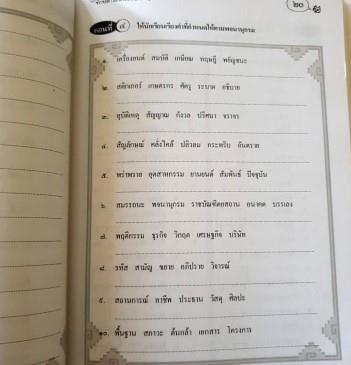 ๒๐
ตอนที่ ๔ ให้นักเรียนเรียงคำที่กำหนดให้ตามพจนานุกรม
๑. เครื่องยนต์ สมบัติ เกษียณ ทฤษฎี พยัญชนะ
๒. สติกเกอร์ เกษตรกร ศัตรู ระบาด อธิบาย
๓. อุบัติเหตุ สัญญาณ กังวล ปริศนา จราจร
๔. สัญลักษณ์ คลั่งไคล้ ปริวลม กระหรับ อันตราย
๕. พร่ำพราย อุตสาหกรรม ยานยนต์ สัมพันธ์ ปัจจุบัน
๖. สมรรถนะ พจนานุกรม ราชบัณฑิตยสถาน อนาคต บรรเลง
๗. พฤติกรรม ธุรกิจ วิกฤต เศรษฐกิจ บริษัท
๘. รหัส สามัญ ขยาย อภิปราย วิจารณ์
๙. สถานการณ์ อาชีพ ประธาน วัสดุ ศิลปะ
๑๐. พื้นฐาน สภาวะ ต้นกล้า เอกสาร โครงการ